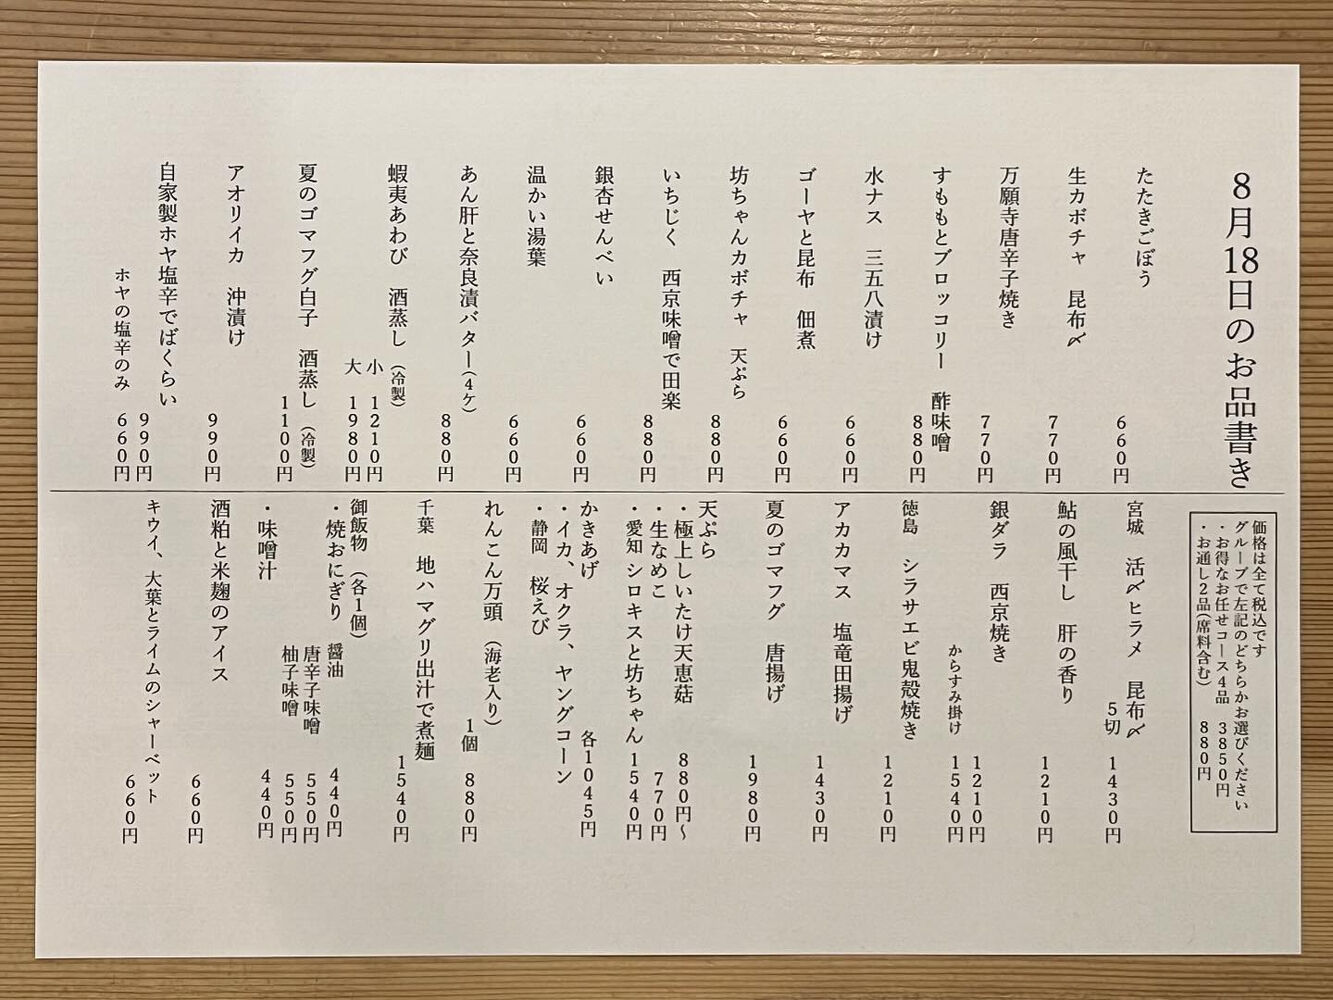 8月18日のお品書き
たたきごぼう 660円
生カボチャ 昆布〆 770円
万願寺唐辛子焼き 770円
すももとブロッコリー 酢味噌 880円
水ナス 三五八漬け 660円
ゴーヤと昆布 佃煮 660円
坊ちゃんカボチャ 天ぷら 880円
いちじく 西京味噌で田楽 880円
銀杏せんべい 660円
温かい湯葉 660円
あん肝と奈良漬バター(4ケ) 880円
蝦夷あわび 酒蒸し(冷製)
小 1210円
大 1980円
夏のゴマフグ白子 酒蒸し(冷製) 1100円
アオリイカ 沖漬け 990円
自家製ホヤ塩辛でばくらい 990円
ホヤの塩辛のみ 660円
価格は全て税込です
グループで左記のどちらかお選びください
・お得なお任せコース4品 3850円
・お通し2品(席料含む) 880円
宮城 活〆ヒラメ 昆布〆
5切 1430円
鮎の風干し 肝の香り 1210円
銀ダラ 西京焼き 1210円
からすみ掛け 1540円
徳島 シラサエビ鬼殻焼き 1210円
アカカマス 塩竜田揚げ 1430円
夏のゴマフグ 唐揚げ 1980円
天ぷら
・極上しいたけ天恵菇 880円〜
・生なめこ 770円
・愛知 シロキスと坊ちゃん 1540円
かきあげ 各1045円
・イカ、オクラ、ヤングコーン
・静岡 桜えび
れんこん万頭(海老入り)
1個 880円
千葉 地ハマグリ出汁で煮麺 1540円
御飯物(各1個)
・焼おにぎり 醤油 440円
唐辛子味噌 550円
柚子味噌 550円
・味噌汁 440円
酒粕と米麹のアイス 660円
キウイ、大葉とライムのシャーベット 660円